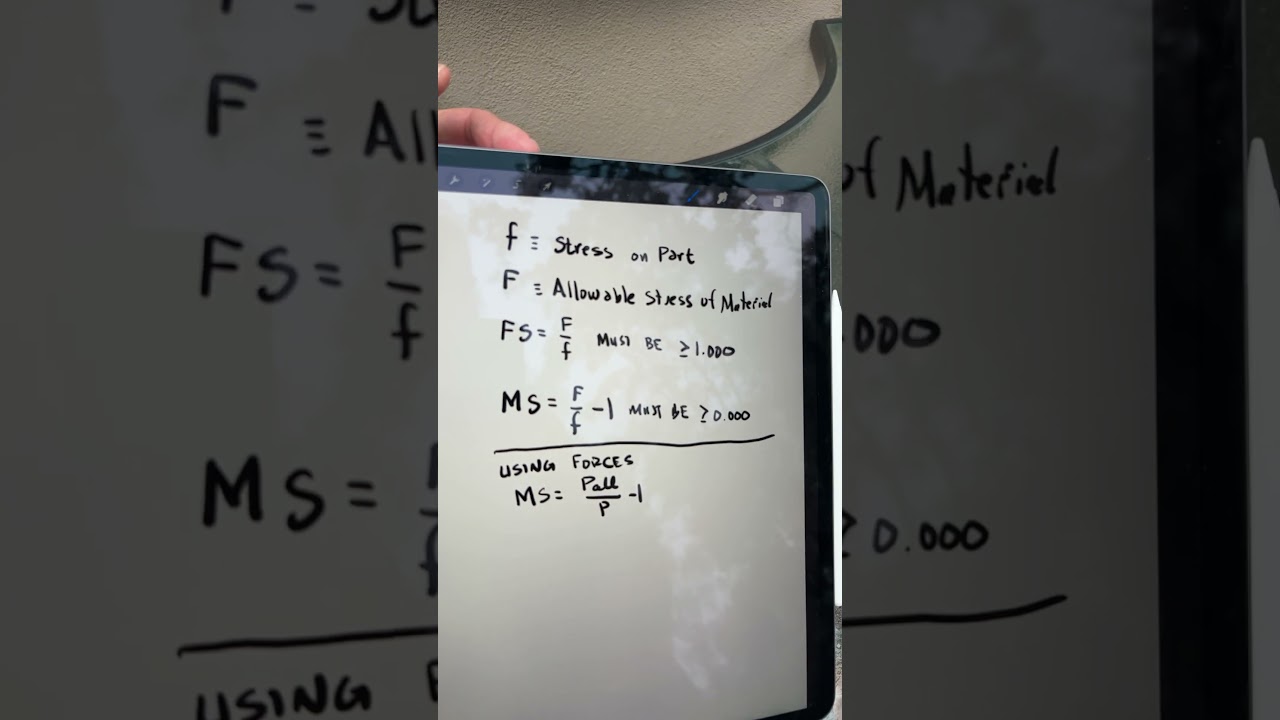 f ≡ Stress on Part
F ≡ Allowable Stress of Material
FS = F/f MUST BE ≥ 1.000
MS = F/f - 1 MUST BE ≥ 0.000
USING FORCES
MS = Pall/P - 1